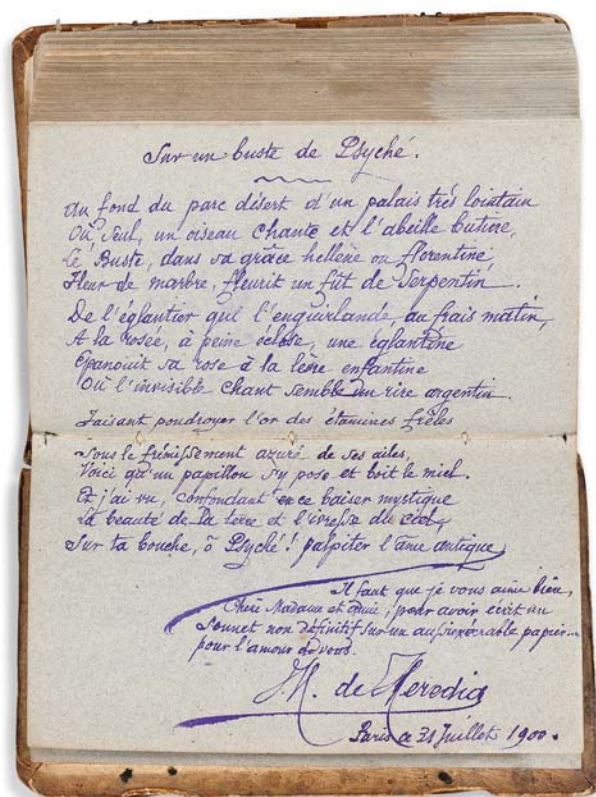 Sur un buste de Psyché.
Au fond du parc désert d'un palais très lointain
Où, seul, un oiseau chante et l'abeille butine,
Le Buste, dans sa grâce hellène ou florentine,
Fleur de marbre, fleurit un fût de Serpentin.
De l'églantier qui l'enguirlande, au frais matin,
A la rosée, à peine éclose, une églantine
Epanouit sa rose à la lèvre enfantine
Où l'invisible chant semble un rire argentin.
Faisant poudroyer l'or des étamines frêles
Sous le frémissement azuré de ses ailes,
Voici qu'un papillon s'y pose et boit le miel.
Et j'ai vu, confondant en ce baiser mystique
La beauté de la terre et l'ivresse du ciel,
Sur ta bouche, ô Psyché! palpiter l'âme antique,
Il faut que je vous aime bien,
Chère Madame et amie, pour avoir écrit un
Sonnet non définitif sur un aussi exécrable papier...
pour l'amour de vous.
J.M. de Heredia
Paris ce 21 Juillet 1900.